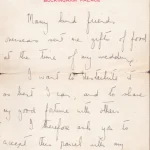 BUCKINGHAM PALACE
Many kind friends
overseas sent me gifts of food
at the time of my wedding.
I want to distribute it
as best I can, and to share
my good fortune with others.
I therefore ask you to
accept this parcel with my